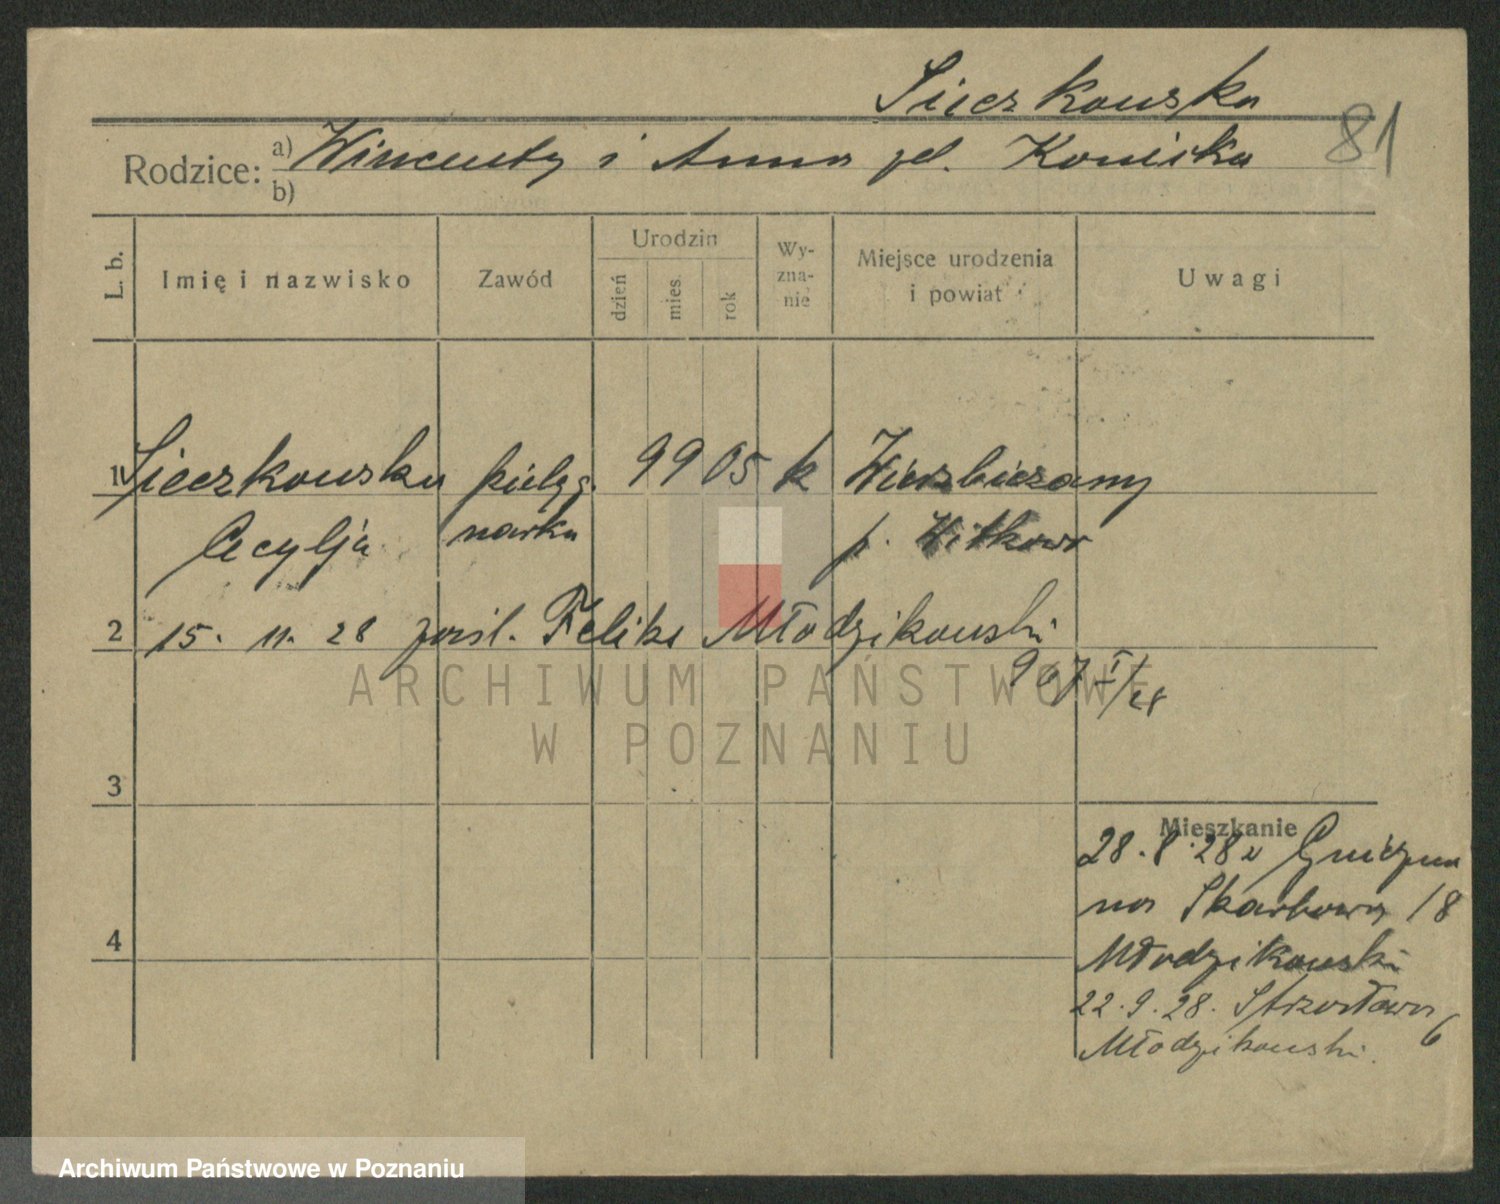 Sieczkowska
81
Rodzice: a) Wincenty i Anna zd. Koniska
b)
L. b. Imię i nazwisko Zawód Urodzin dzień mies. rok Wy-zna-nie Miejsce urodzenia i powiat Uwagi
1 Sieczkowska pielęg. 9 9 05 k Wierzbiczany
Cecylja narka p. Witkowo
2 15. 11. 28 Feliks Młodzikowski
907 I/28
ARCHIWUM PAŃSTWOWE
W POZNANIU
3
Mieszkanie
28. 8. 28 z Gniezna
na Skarbowa 18
4
Młodzikowski
22. 9. 28. Strzałowa 6
Młodzikowski.
Archiwum Państwowe w Poznaniu